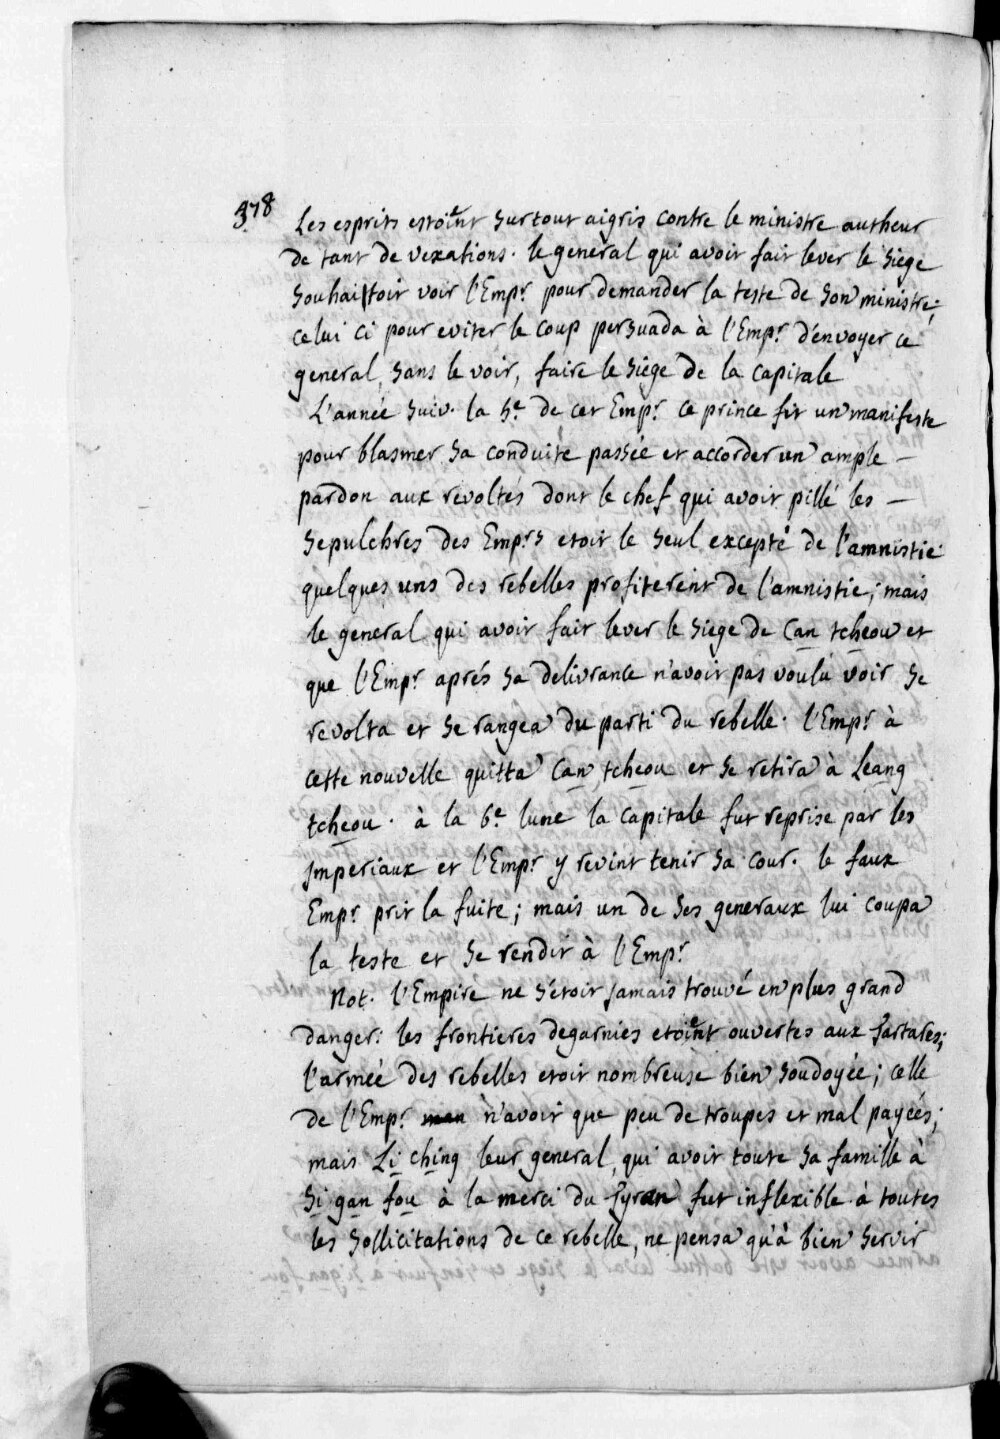 378
Les esprits estoient surtout aigris contre le ministre autheur
de tant de vexations. le general qui avoit fait lever le siege
souhaittoit voir l'Empr. pour demander la teste de son ministre;
celui ci pour eviter le coup persuada à l'Empr. d'envoyer ce
general, sans le voir, faire le siege de la capitale
L'année suiv. la 5e. de cet Empr. ce prince fit un manifeste
pour blasmer sa conduite passée et accorder un ample –
pardon aux revoltés dont le chef qui avoit pillé les –
sepulchres des Emprs etoit le seul excepté de l'amnistie.
quelques uns des rebelles profiterent de l'amnistie; mais
le general qui avoit fait lever le siege de Can tcheou et
que l'Empr. aprés sa delivrance n'avoit pas voulu voir se
revolta et se rangea du parti du rebelle. l'Empr. à
cette nouvelle quitta Can tcheou et se retira à Leang
tcheou. à la 6e. lune la capitale fut reprise par les
imperiaux et l'Empr. y revint tenir sa cour. le faux
Empr. prit la fuite; mais un de ses generaux lui coupa
la teste et se rendit à l'Empr.
Not. l'Empire ne s'étoit jamais trouvé en plus grand
danger: les frontieres degarnies etoient ouvertes aux tartares;
l'armée des rebelles etoit nombreuse bien soudoyée; celle
de l'Empr. n'avoit que peu de troupes et mal payées;
mais Li ching leur general, qui avoit toute sa famille à
Si gan fou à la merci du tyran fut inflexible à toutes
les sollicitations de ce rebelle, ne pensa qu'à bien servir